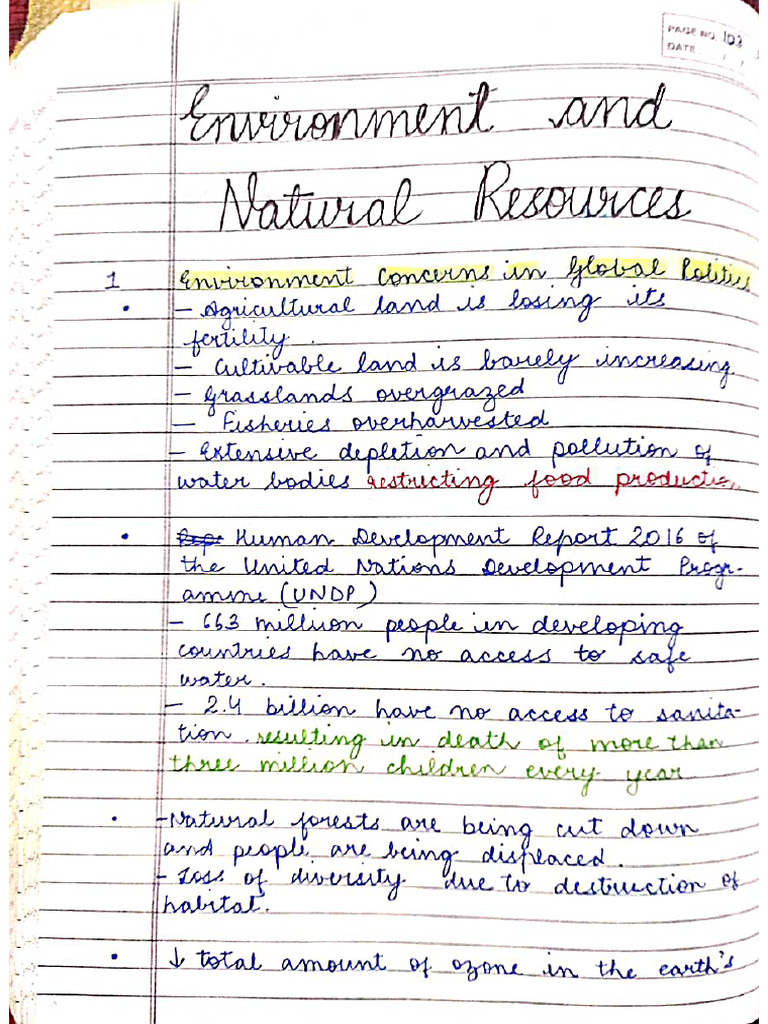 PAGE NO. 103
DATE: / /
Environment and
Natural Resources
1 Environment Concerns in Global Politics
• - Agricultural land is losing its
fertility.
- Cultivable land is barely increasing
- Grasslands overgrazed
- Fisheries overharvested
- Extensive depletion and pollution of
water bodies restricting food production
• Human Development Report 2016 of
the United Nations Development Progr-
amme (UNDP)
- 663 million people in developing
countries have no access to safe
water.
- 2.4 billion have no access to sanita-
tion resulting in death of more than
three million children every year
• - Natural forests are being cut down
and people are being displaced.
- Loss of diversity due to destruction of
habital.
• ↓ total amount of ozone in the earth's